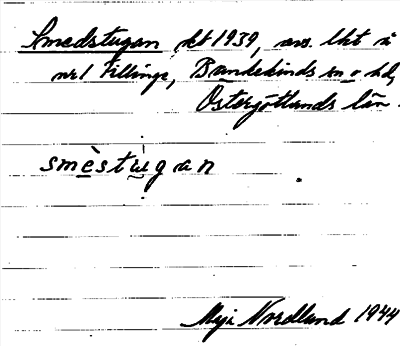 Smedstugan kt 1939, avs. lht å
nr 1 Fillinge, Bankekinds sn o hd,
Östergötlands län.
smèstùgan
Maja Nordlund 1944